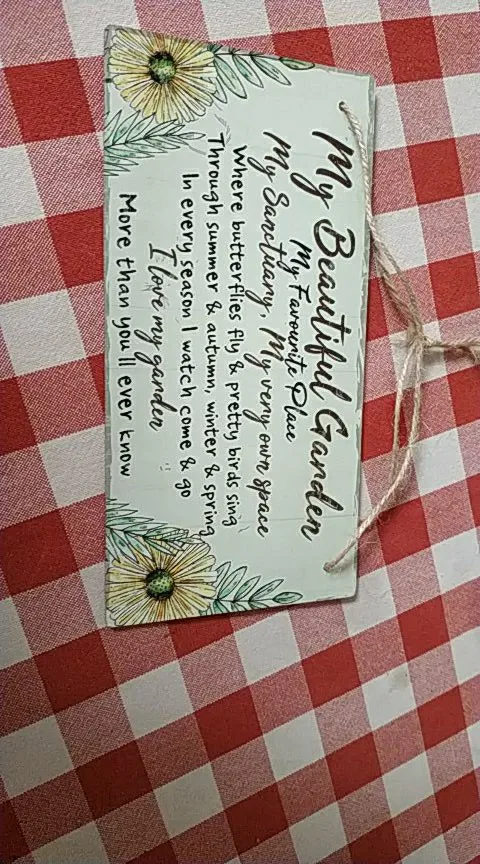 My Beautiful Garden
My Favourite Place
My Sanctuary, My very own space
Where butterflies fly & pretty birds sing
Through summer & autumn, winter & spring
In every season I watch come & go
I love my garden
More than you'll ever know